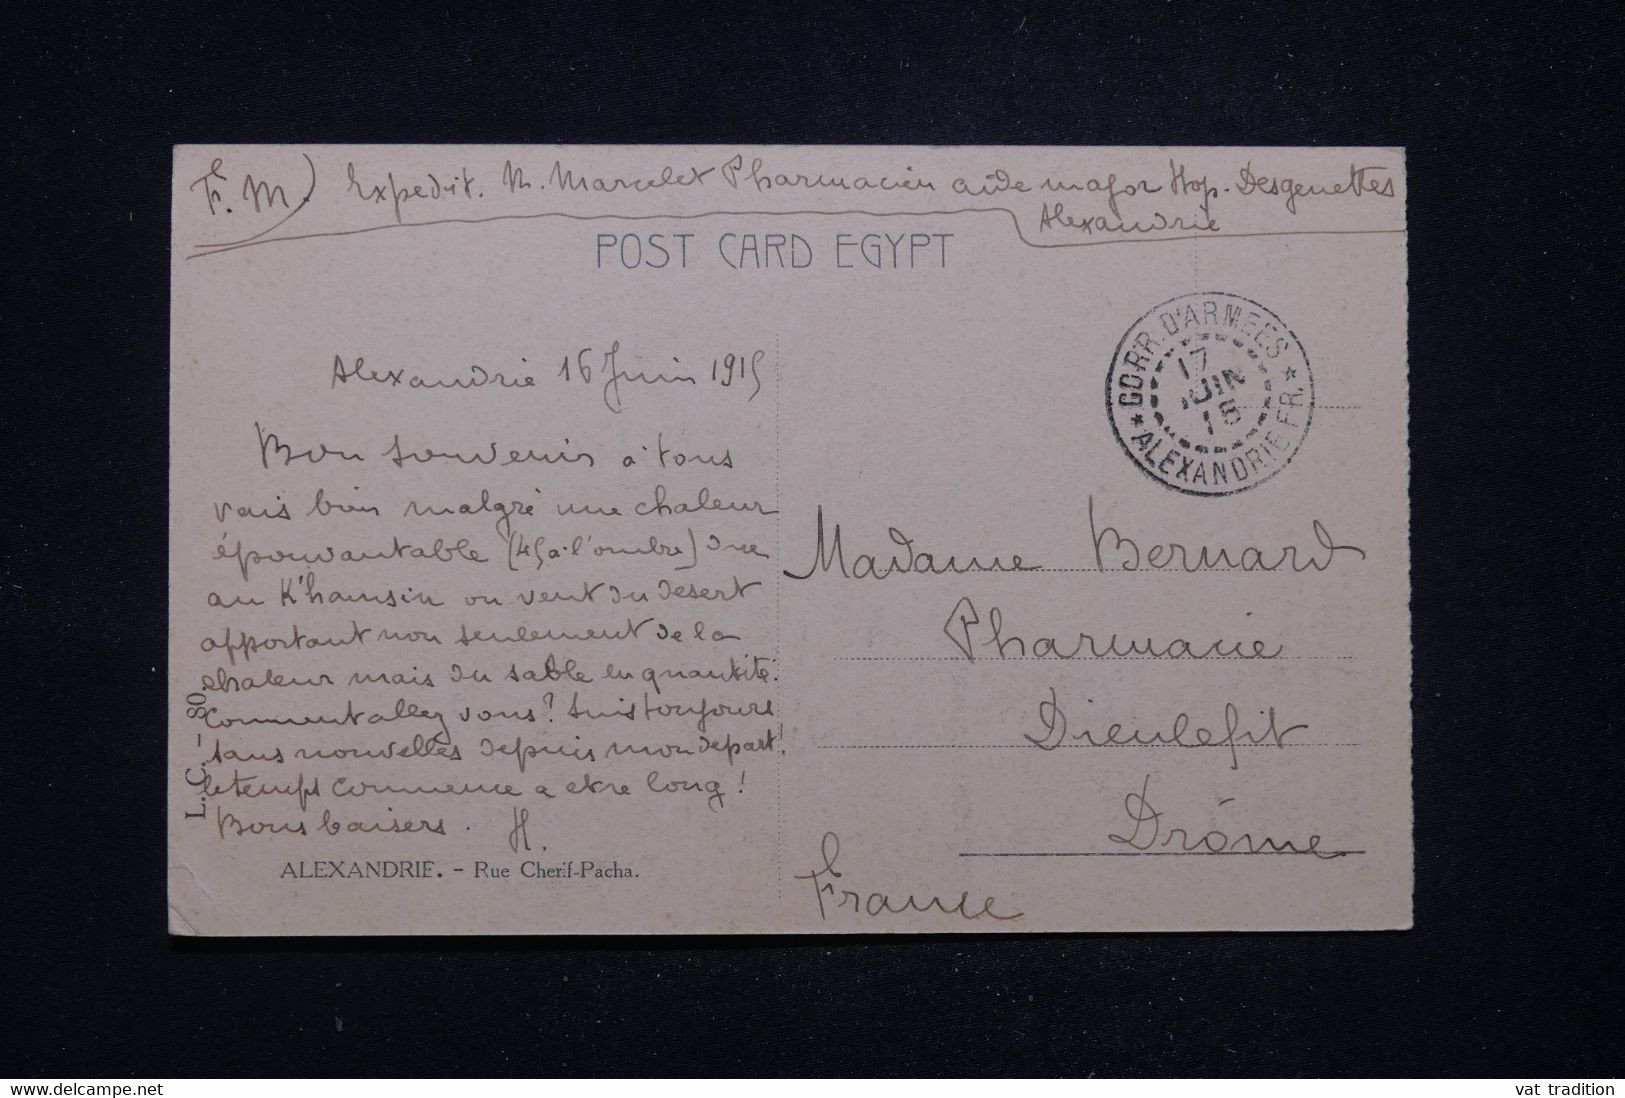 F. M) Expedit. M. Marcelet Pharmacien aide major Hop. Desgenettes
Alexandrie
POST CARD EGYPT
CORR. D'ARMEES
17
JUIN
15
* ALEXANDRIE FR. *
Alexandrie 16 Juin 1915
Bon souvenir à tous
vais bien malgré une chaleur
épouvantable (45 à l'ombre) due
au K'hamsin ou vent du desert
apportant non seulement de la
chaleur mais du sable en quantité.
Comment allez vous? Suis toujours
sans nouvelles depuis mon depart!
le temps commence a etre long!
Bons baisers. H.
Madame Bernard
Pharmacie
Dieulefit
Drôme
France
L. C. - 80
ALEXANDRIE. - Rue Cherif-Pacha.
www.delcampe.net
vat tradition